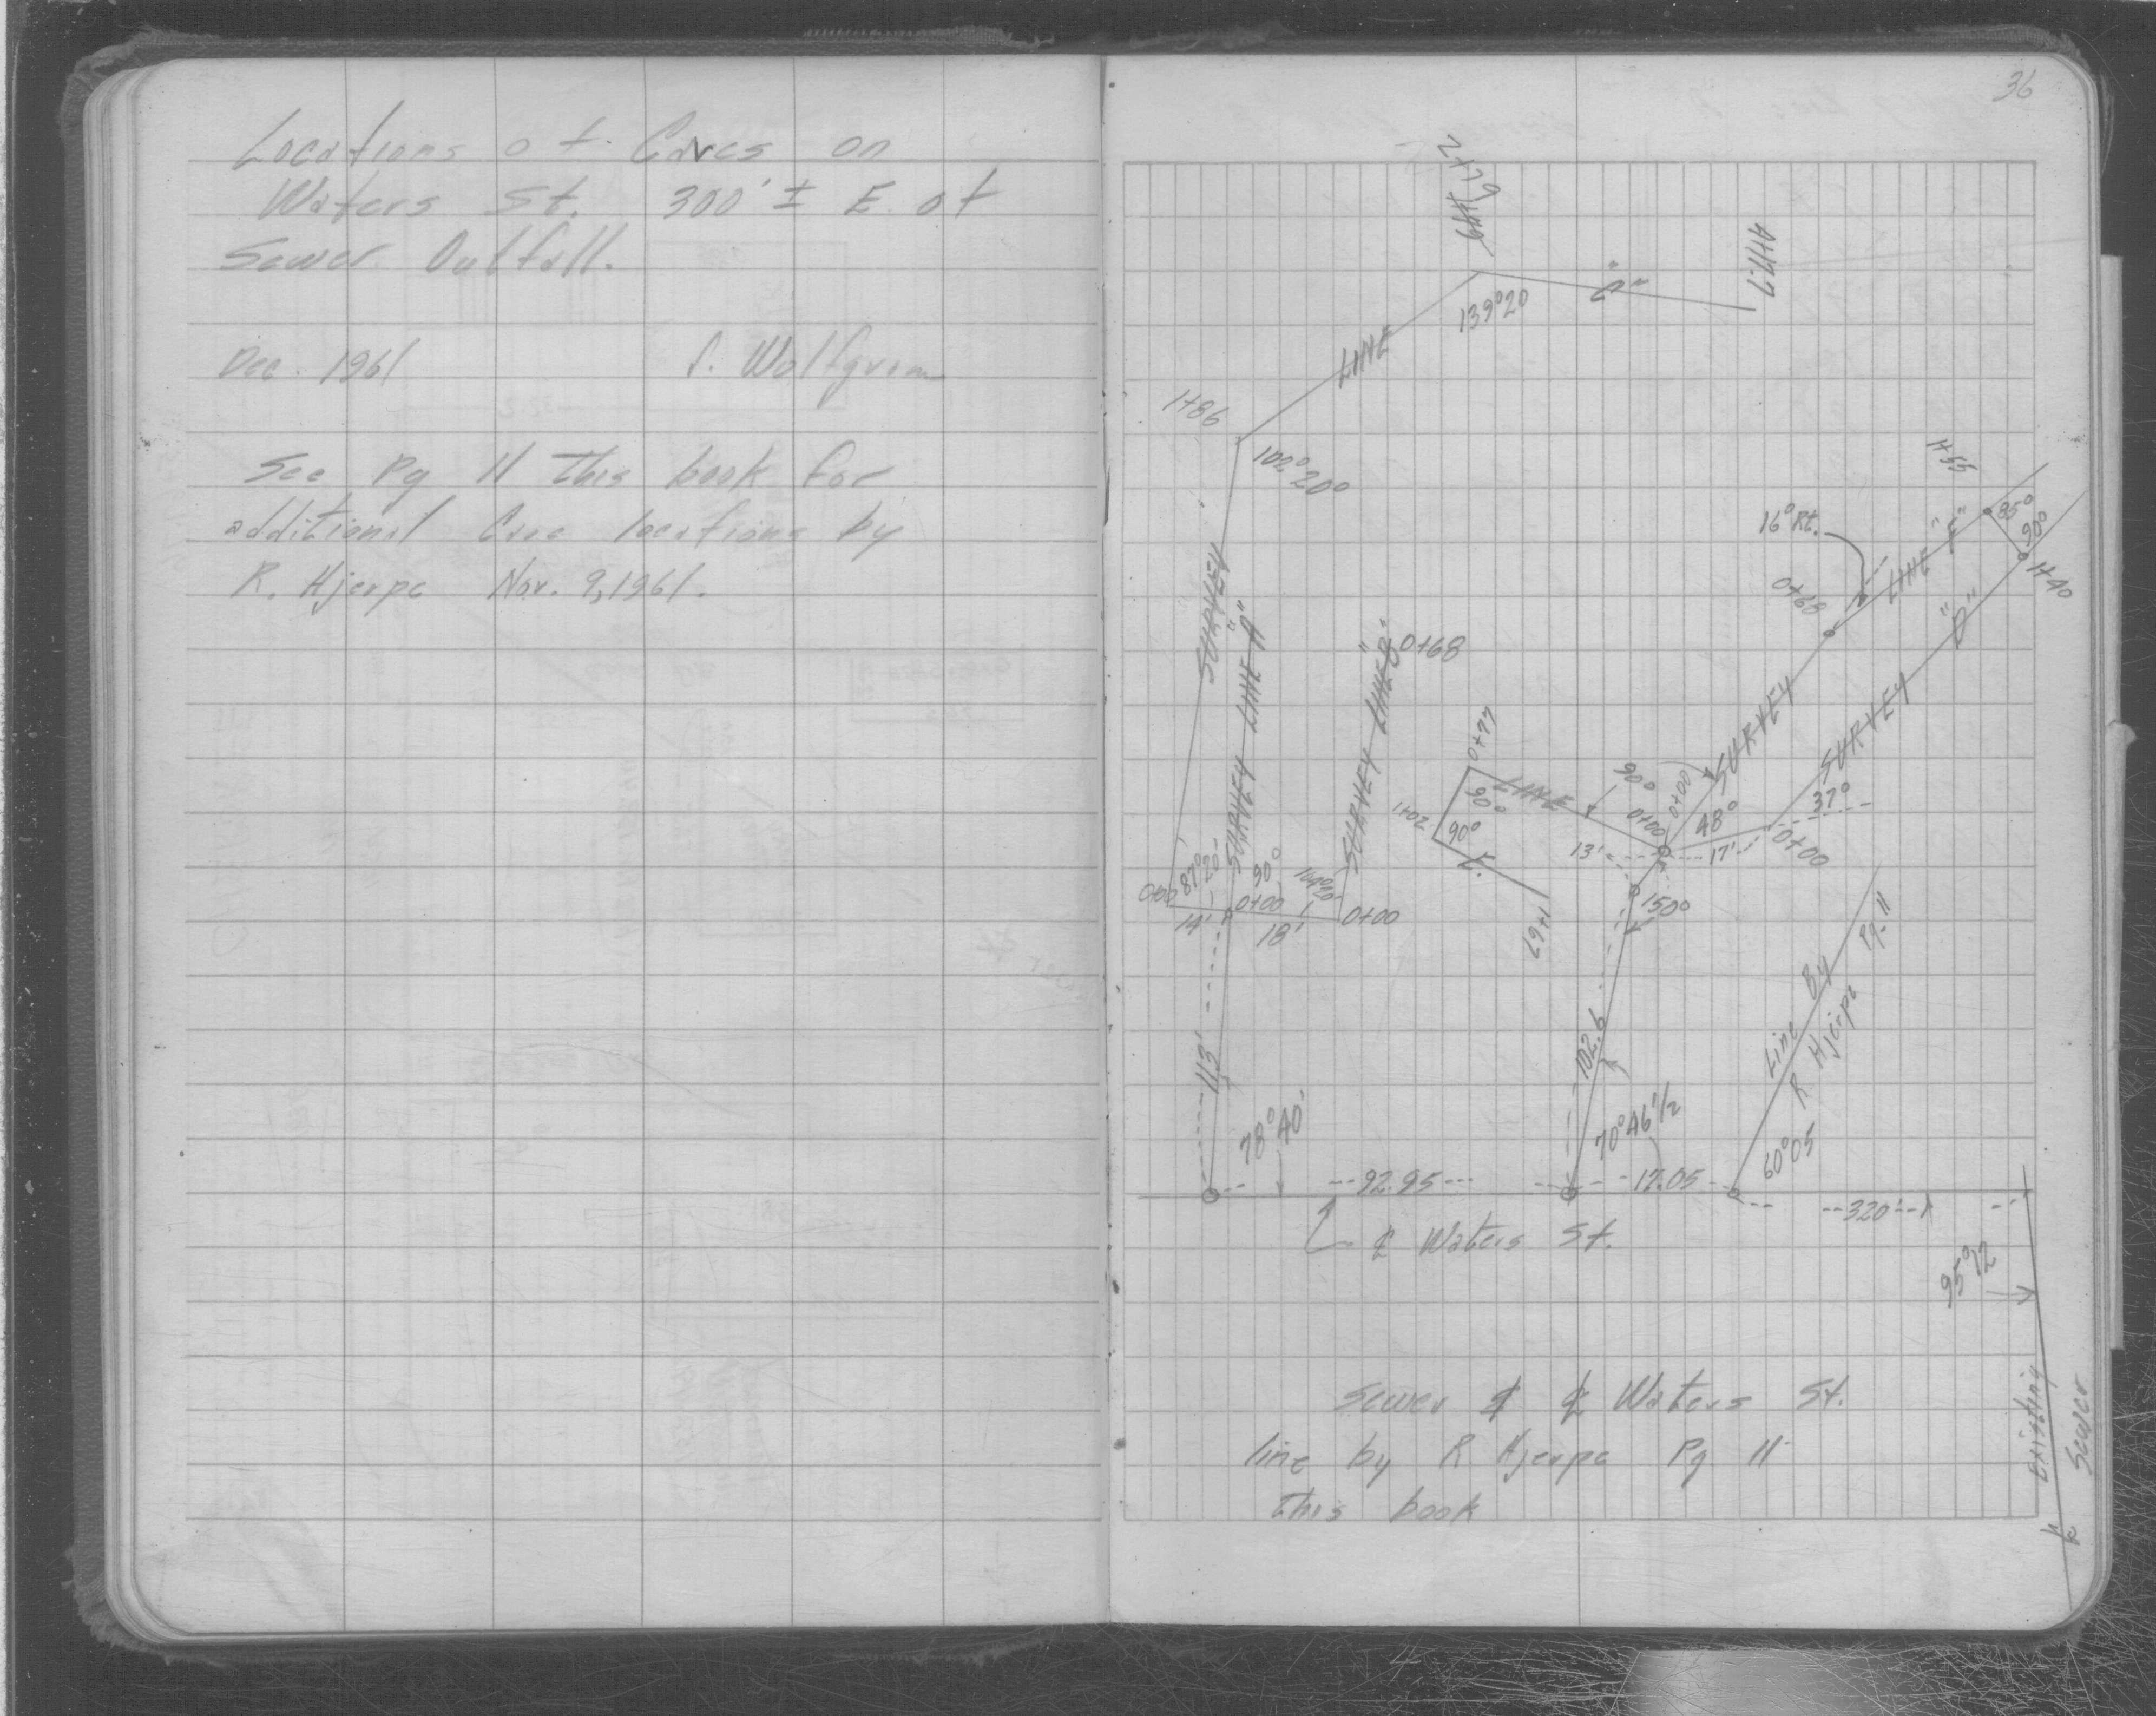 Locations of Caves on
Waters St. 300' ± E. of
Sewer Outfall.
Dec. 1961
Wolfgram
See Pg 11 this book for
additional Cave locations by
R. Hjerpe Nov. 9, 1961.
36
4+17.7
"C"
139°20
LINE
1+86
102°20°
SURVEY
SURVEY LINE "A"
SURVEY LINE "B"
0+68
1+55
85°
90°
1+40
16° Rt.
0+68
LINE "E"
SURVEY
SURVEY "D"
0+77
LINE
90°
90°
90°
1+02
0+00
0+00
48°
37°
0+00
13'
17'
1+67
150°
0+00
87°20'
90°
0+00
0+00
14'
18'
113'
102.6
Line By
R Hjerpe
Pg. 11
78°40'
70°46'1/2
60°05
92.95
17.05
320'
℄ Waters St.
95°12
Existing
Sewer
Sewer ℄ ℄ Waters St.
line by R Hjerpe Pg 11
this book